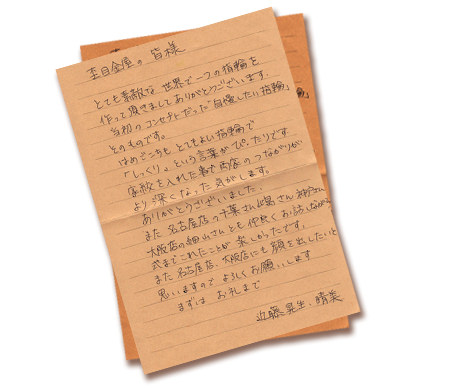 杢目金屋の皆様
とても素敵な世界で一つの指輪を
作って頂きましてありがとうございます。
当初のコンセプトだった「自慢したい指輪」
そのものです。
はめごこちもとてもよい指輪で
「しっくり」という言葉がぴったりです
家紋を入れた事で両家のつながりが
より深くなった気がします。
ありがとうございました。
また名古屋店の千葉さん さん 神戸さん
大阪店の細山さんとも仲良くお話しながら
式までこれたことが楽しかったです。
また名古屋店、大阪店にも顔を出したいと
思いますので よろしくお願いします
まずは お礼まで
近藤 晃生、晴美